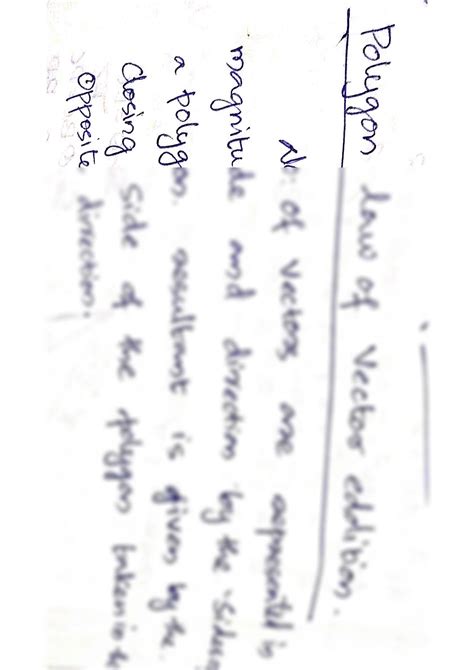 Polygon law of Vector eddition.
No. of Vectors are represented in
magnitude and direction by the sides
a polygon. resultant is given by the
closing side of the polygon taken in th
opposite direction.